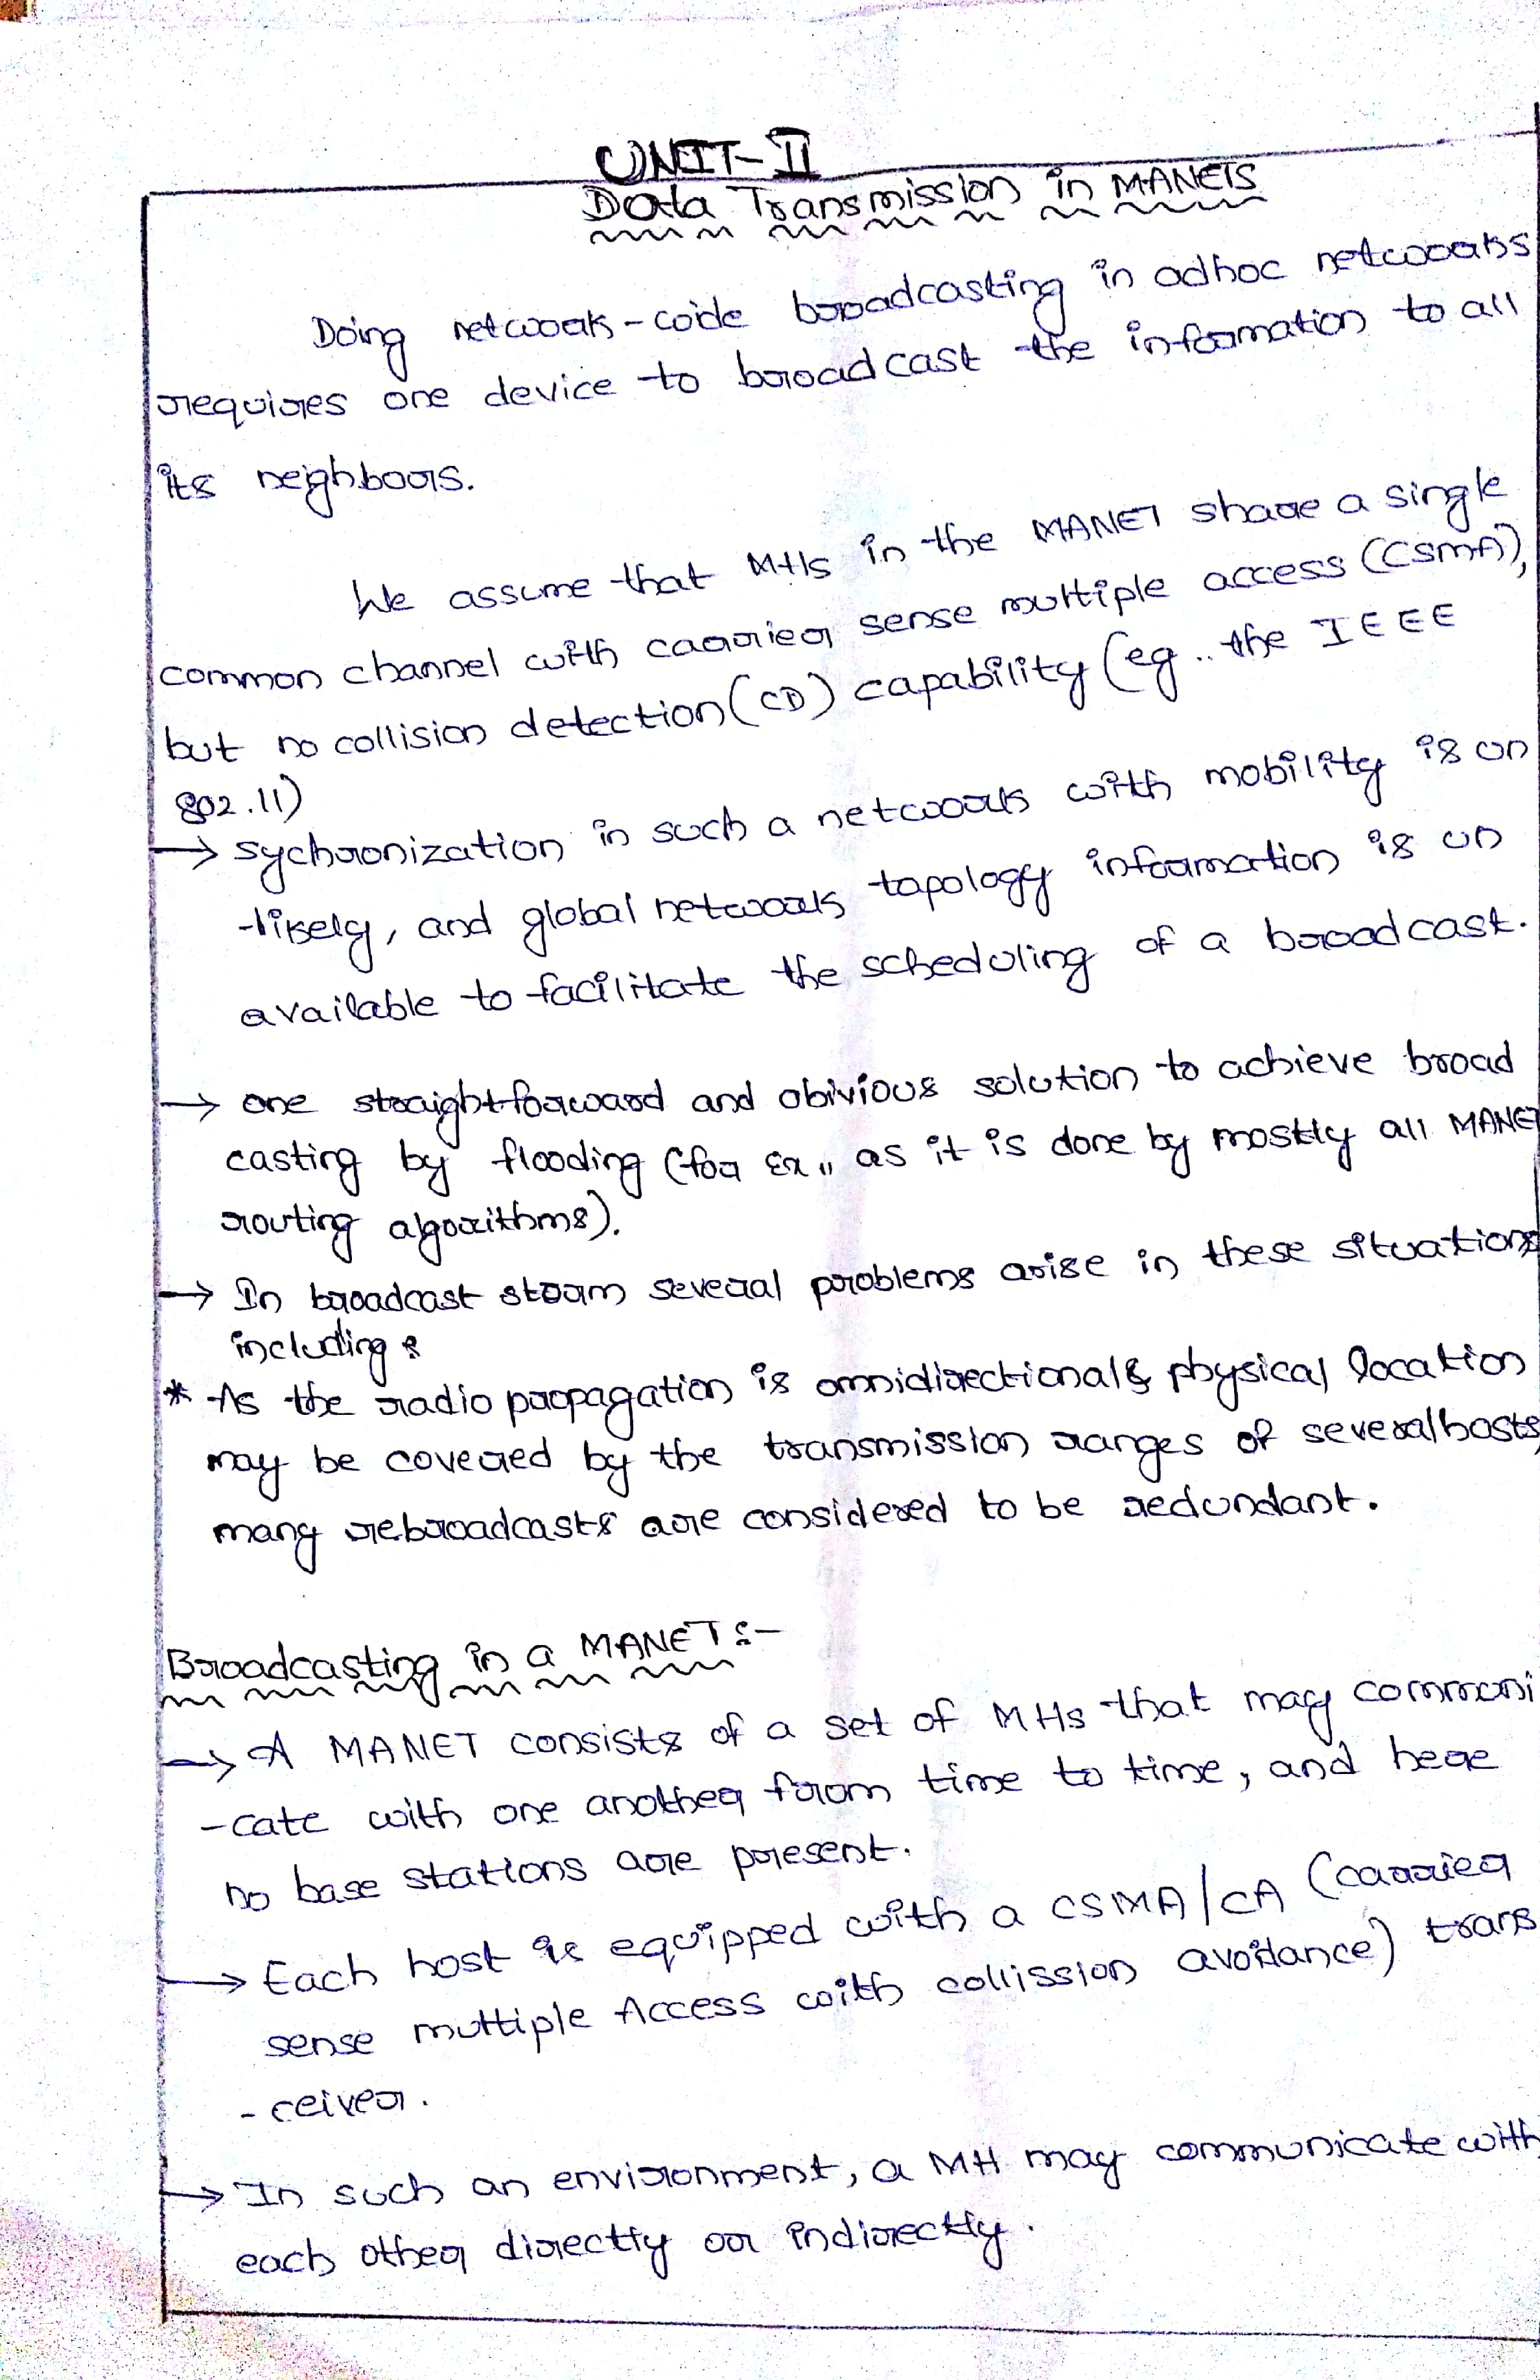 UNIT-II
Data Transmission in MANETS
Doing network-wide broadcasting in adhoc networks
requires one device to broadcast the information to all
its neighbours.
We assume that MHs in the MANET share a single
common channel with carrier sense multiple access (CSMA),
but no collision detection (CD) capability (eg.. the IEEE
802.11)
→ sychronization in such a network with mobility is un
-likely, and global network topology information is un
available to facilitate the scheduling of a broadcast.
→ one straightforward and obivious solution to achieve broad
casting by flooding (for Ex,, as it is done by mostly all MANET
routing algorithms).
→ In broadcast storm several problems arise in these situations
including:
* As the radio propagation is omnidirectional & physical location
may be covered by the transmission ranges of several hosts,
many rebroadcasts are considered to be redundant.
Broadcasting in a MANET:-
→ A MANET consists of a set of MHs that may communi
-cate with one another from time to time, and here
no base stations are present.
→ Each host is equipped with a CSMA/CA (carrier
sense multiple Access with collission avoidance) trans
-ceiver.
→ In such an environment, a MH may communicate with
each other directly or indirectly.